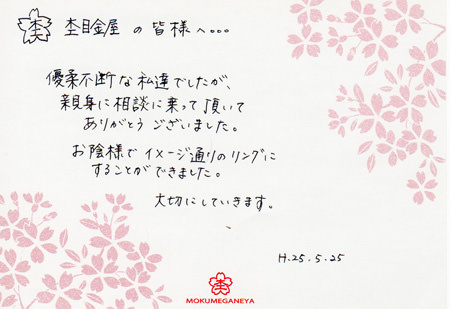 杢目金屋 の 皆様へ...
優柔不断な私達でしたが、
親身に相談に乗って頂いて
ありがとうございました。
お陰様でイメージ通りのリングに
することができました。
大切にしていきます。
H.25.5.25
MOKUMEGANEYA